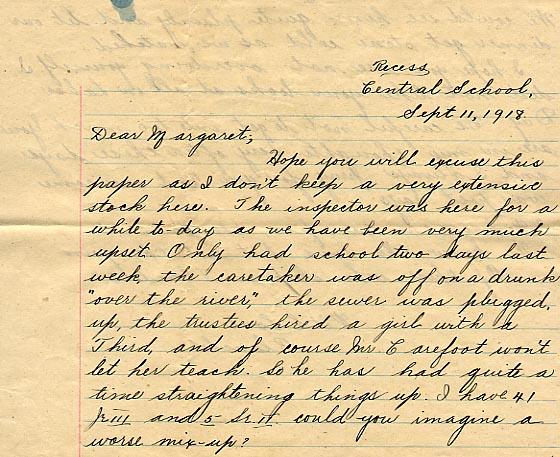 Recess
Central School,
Sept 11, 1918
Dear Margaret;
Hope you will excuse this
paper as I don't keep a very extensive
stock here. The inspector was here for a
while to-day as we have been very much
upset. Only had school two days last
week, the caretaker was off on a drunk
"over the river," the sewer was plugged.
up, the trustees hired a girl with a
Third, and of course Mr Carefoot won't
let her teach. So he has had quite a
time straightening things up. I have 41
Jr III and 5 Sr II could you imagine a
worse mix-up?